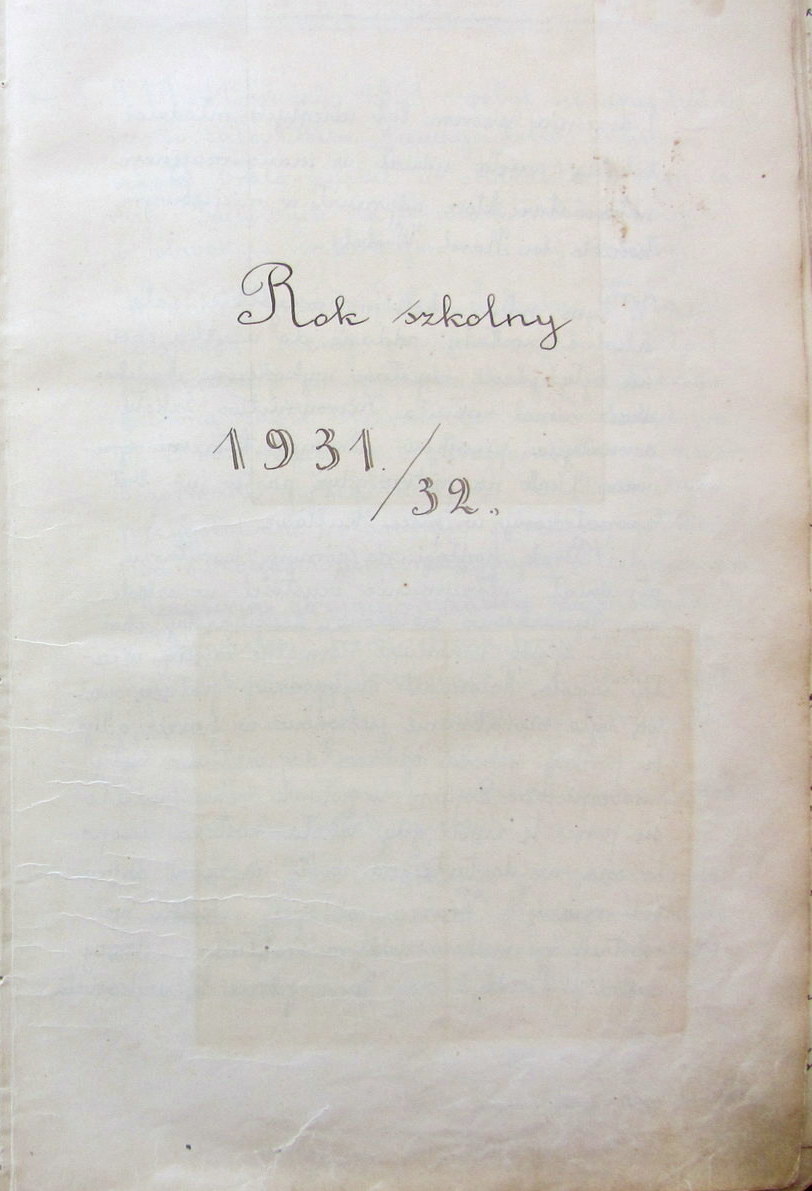 Rok szkolny
1931./32.